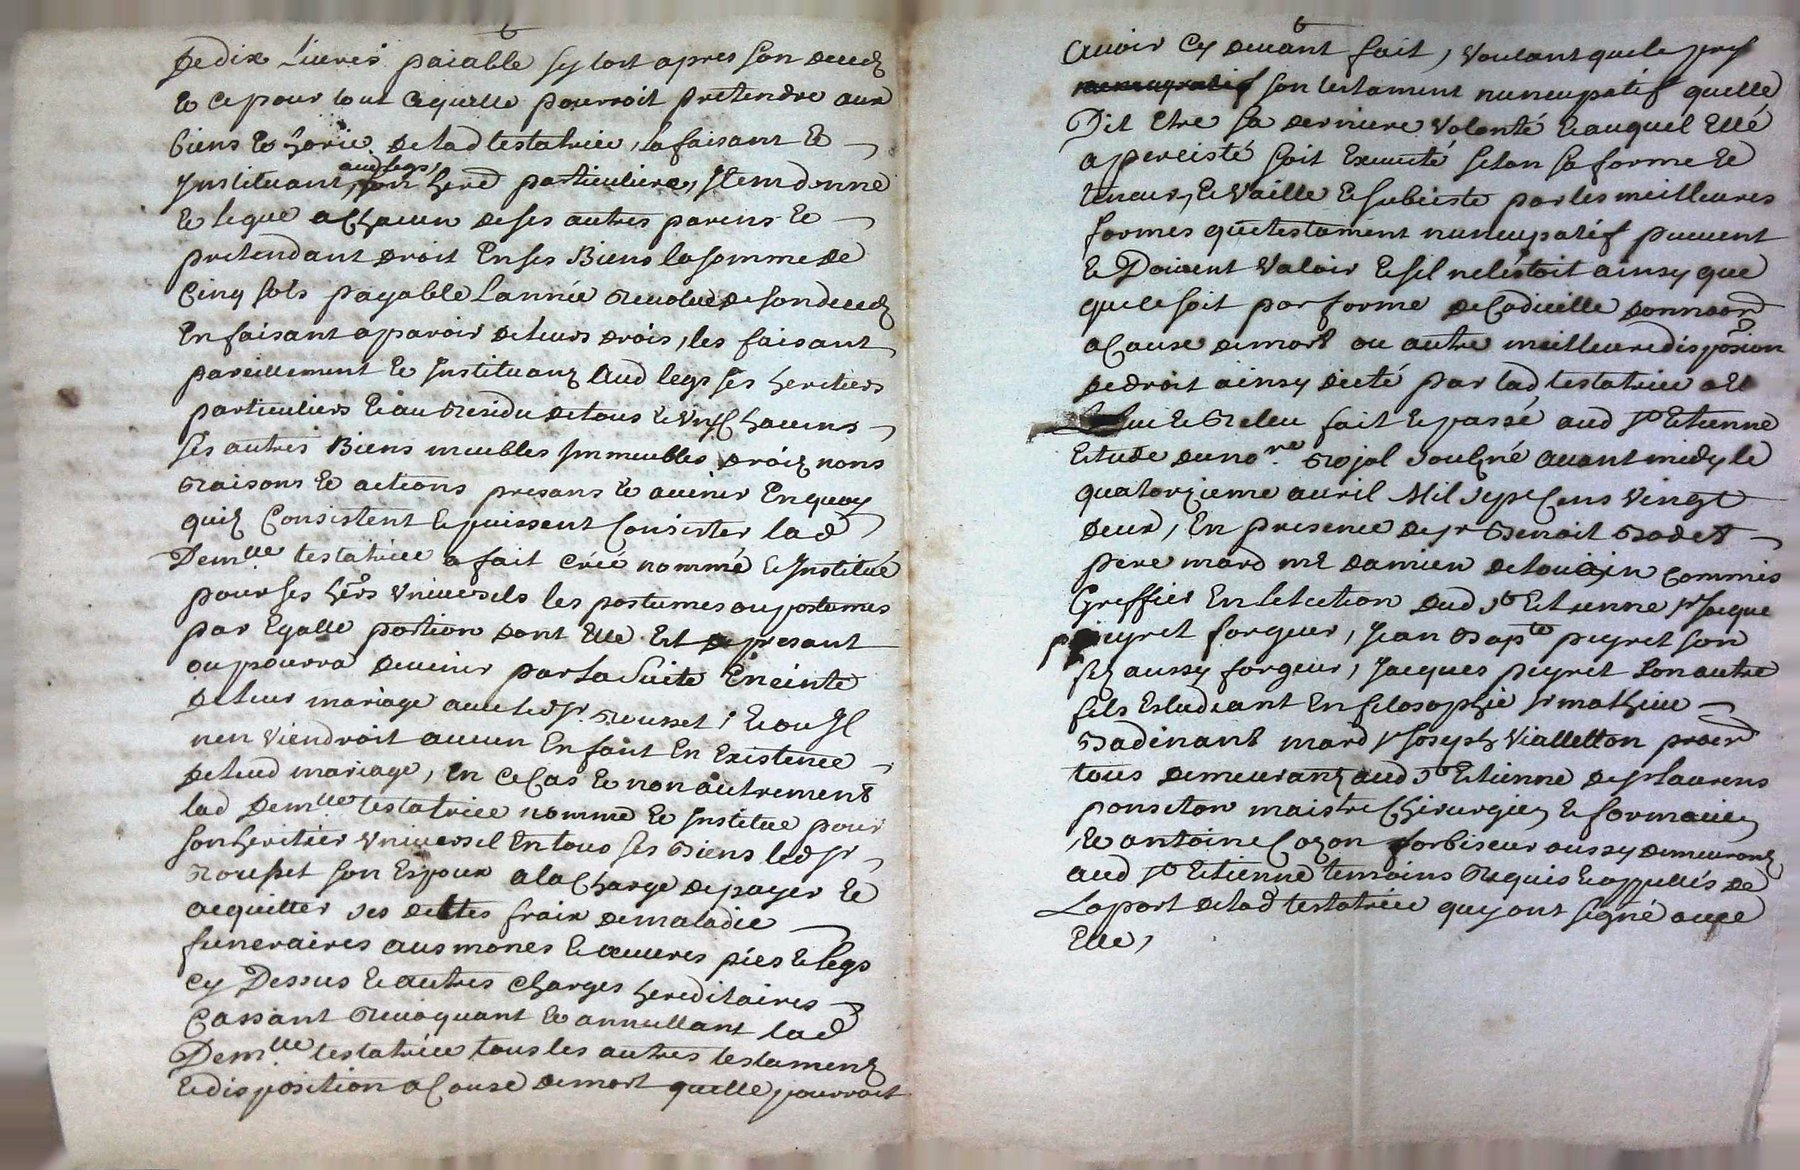 de dix livres paiable sy tost apres son deced
et ce pour tout ce quelle pourroit pretendre aux
biens et horie de lad testatrice, la faisant et
Instituant aud legs son hered particuliere, Item donne
et legue a chacun de ses autres parens et
pretendant droit en ses Biens la somme de
Cinq sols payable Lannée revolue de son deced
En faisant aparoir de leurs drois, les faisant
pareillement et Instituant Aud legs ses heritiers
particuliers et au residu de tous et uns chacuns
ses autres Biens meubles Immeubles droiz noms
raisons et actions presans et avenir En quoy
quiz Consistent et puissent Consister lad
Demlle testatrice a fait créé nommé et Institué
pour ses hers universels les postumes ou postumes
par Egalle portion dont Elle Est de presant
ou pourra devenir par la Suite Enceinte
de leur mariage avec led Sr Rousset, et ou Il
nen viendroit aucun Enfant En Existence
de leud mariage, En ce Cas et non autrement
lad demlle testatrice nomme et Institue pour
son heritier universel En tous ses Biens led Sr
Rousset son Espoux a la Charge de payer et
acquitter ses debtes fraix de maladie
funeraires ausmones et œuvres pies et legs
cy Dessus et autres charges hereditaires
Cassant Revoquant et annullant lad
Demlle testatrice tous les autres testamenz
et disposition a Cause de mort quelle pourroit
6
6
avoir cy devant fait, voulant que le pnt
son testament nuncupatif quelle
Dit Etre sa derniere volonté et auquel Elle
a percisté soit Executé selon sa forme et
teneur, et vaille et subciste par les meilleures
formes que testament nuncupatif peuvent
et Doivent valoir et sil nestoit ainsy que
que ce soit par forme de Codicille donnaon
a Cause de mort ou autre meilleure disposion
de droit ainsy dicté par lad testatrice a Elle
Leu et Releu fait et passé aud St Etienne
Etude du nore Rojal Soulgné avant midy le
quatorzieme avril Mil Sept Cens vingt
deux, En presence de Sr Benoit Badet
pere mard mr Damien de louain commis
Greffier En lelection dud St Etienne Sr Jacque
peyret forgeur, Jean Bapte peyret son
fils aussy forgeur, Jacques peyret son autre
fils Estudiant En filosophie Sr mathieu
Badinant mard Sr Joseph Vialletton procr
tous demeurant aud St Etienne de Sr Laurens
ponceton maistre Chirurgien et
et antoine Cozon forbiseur aussy demeurant
aud St Etienne temoins Requis et appellés de
La part de lad testatrice quy ont signé avec
Elle,